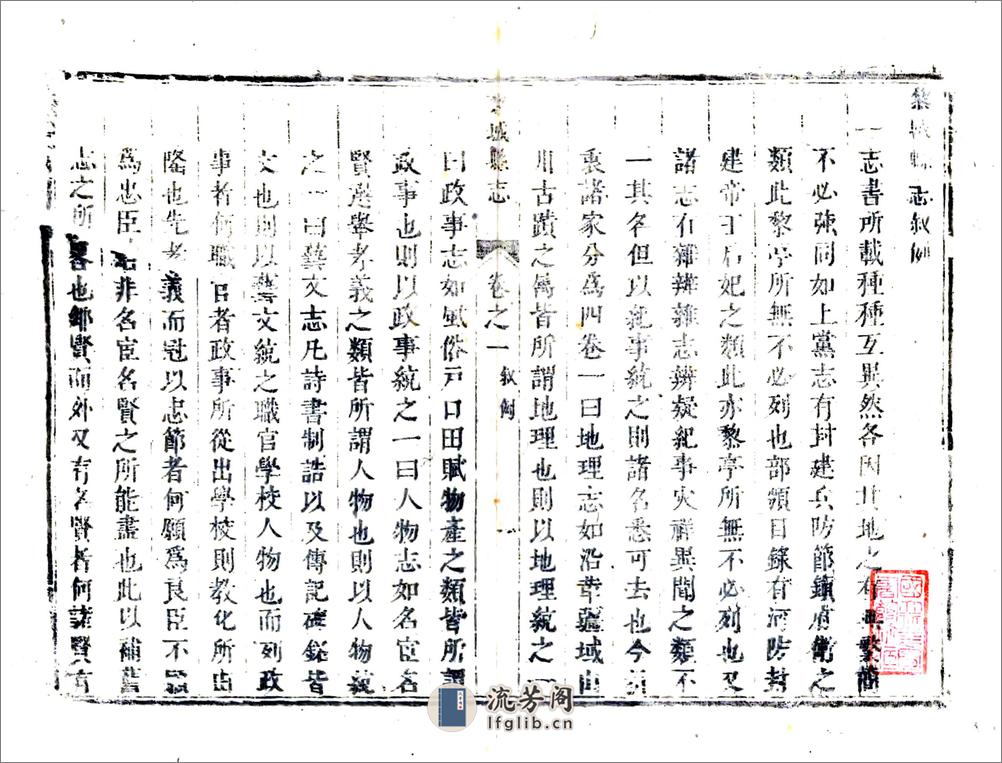 黎城縣志叙例
一志書所載種種互異然各因其地之有無繁簡
不必強同如上黨志有封建兵防節鎮府衛之
類此黎亭所無不必列也部頒目錄有河防封
建帝王后妃之類此亦黎亭所無不必列也又
諸志有雜辨雜志辨疑紀事災祥異聞之類不
一其名但以紀事統之則諸名悉可去也今
裒諸家分為四卷一曰地理志如沿革疆域山
川古蹟之屬皆所謂地理也則以地理統之一
城縣志
卷之一
叙例
一
曰政事志如風俗戸口田賦物產之類皆所謂
政事也則以政事統之一曰人物志如名宦名
賢選舉孝義之類皆所謂人物也則以人物統
之一曰藝文志凡詩書制誥以及傳記碑銘皆
文也則以藝文統之職官學校人物也而列政
事者何職官者政事所從出學校則教化所由
隆也先孝義而冠以忠節者何願為良臣不願
為忠臣非名宦名賢之所能盡也此以補舊
志之所畧也鄉賢而外又有名賢者何諸賢有
流芳阁
lfglib.cn